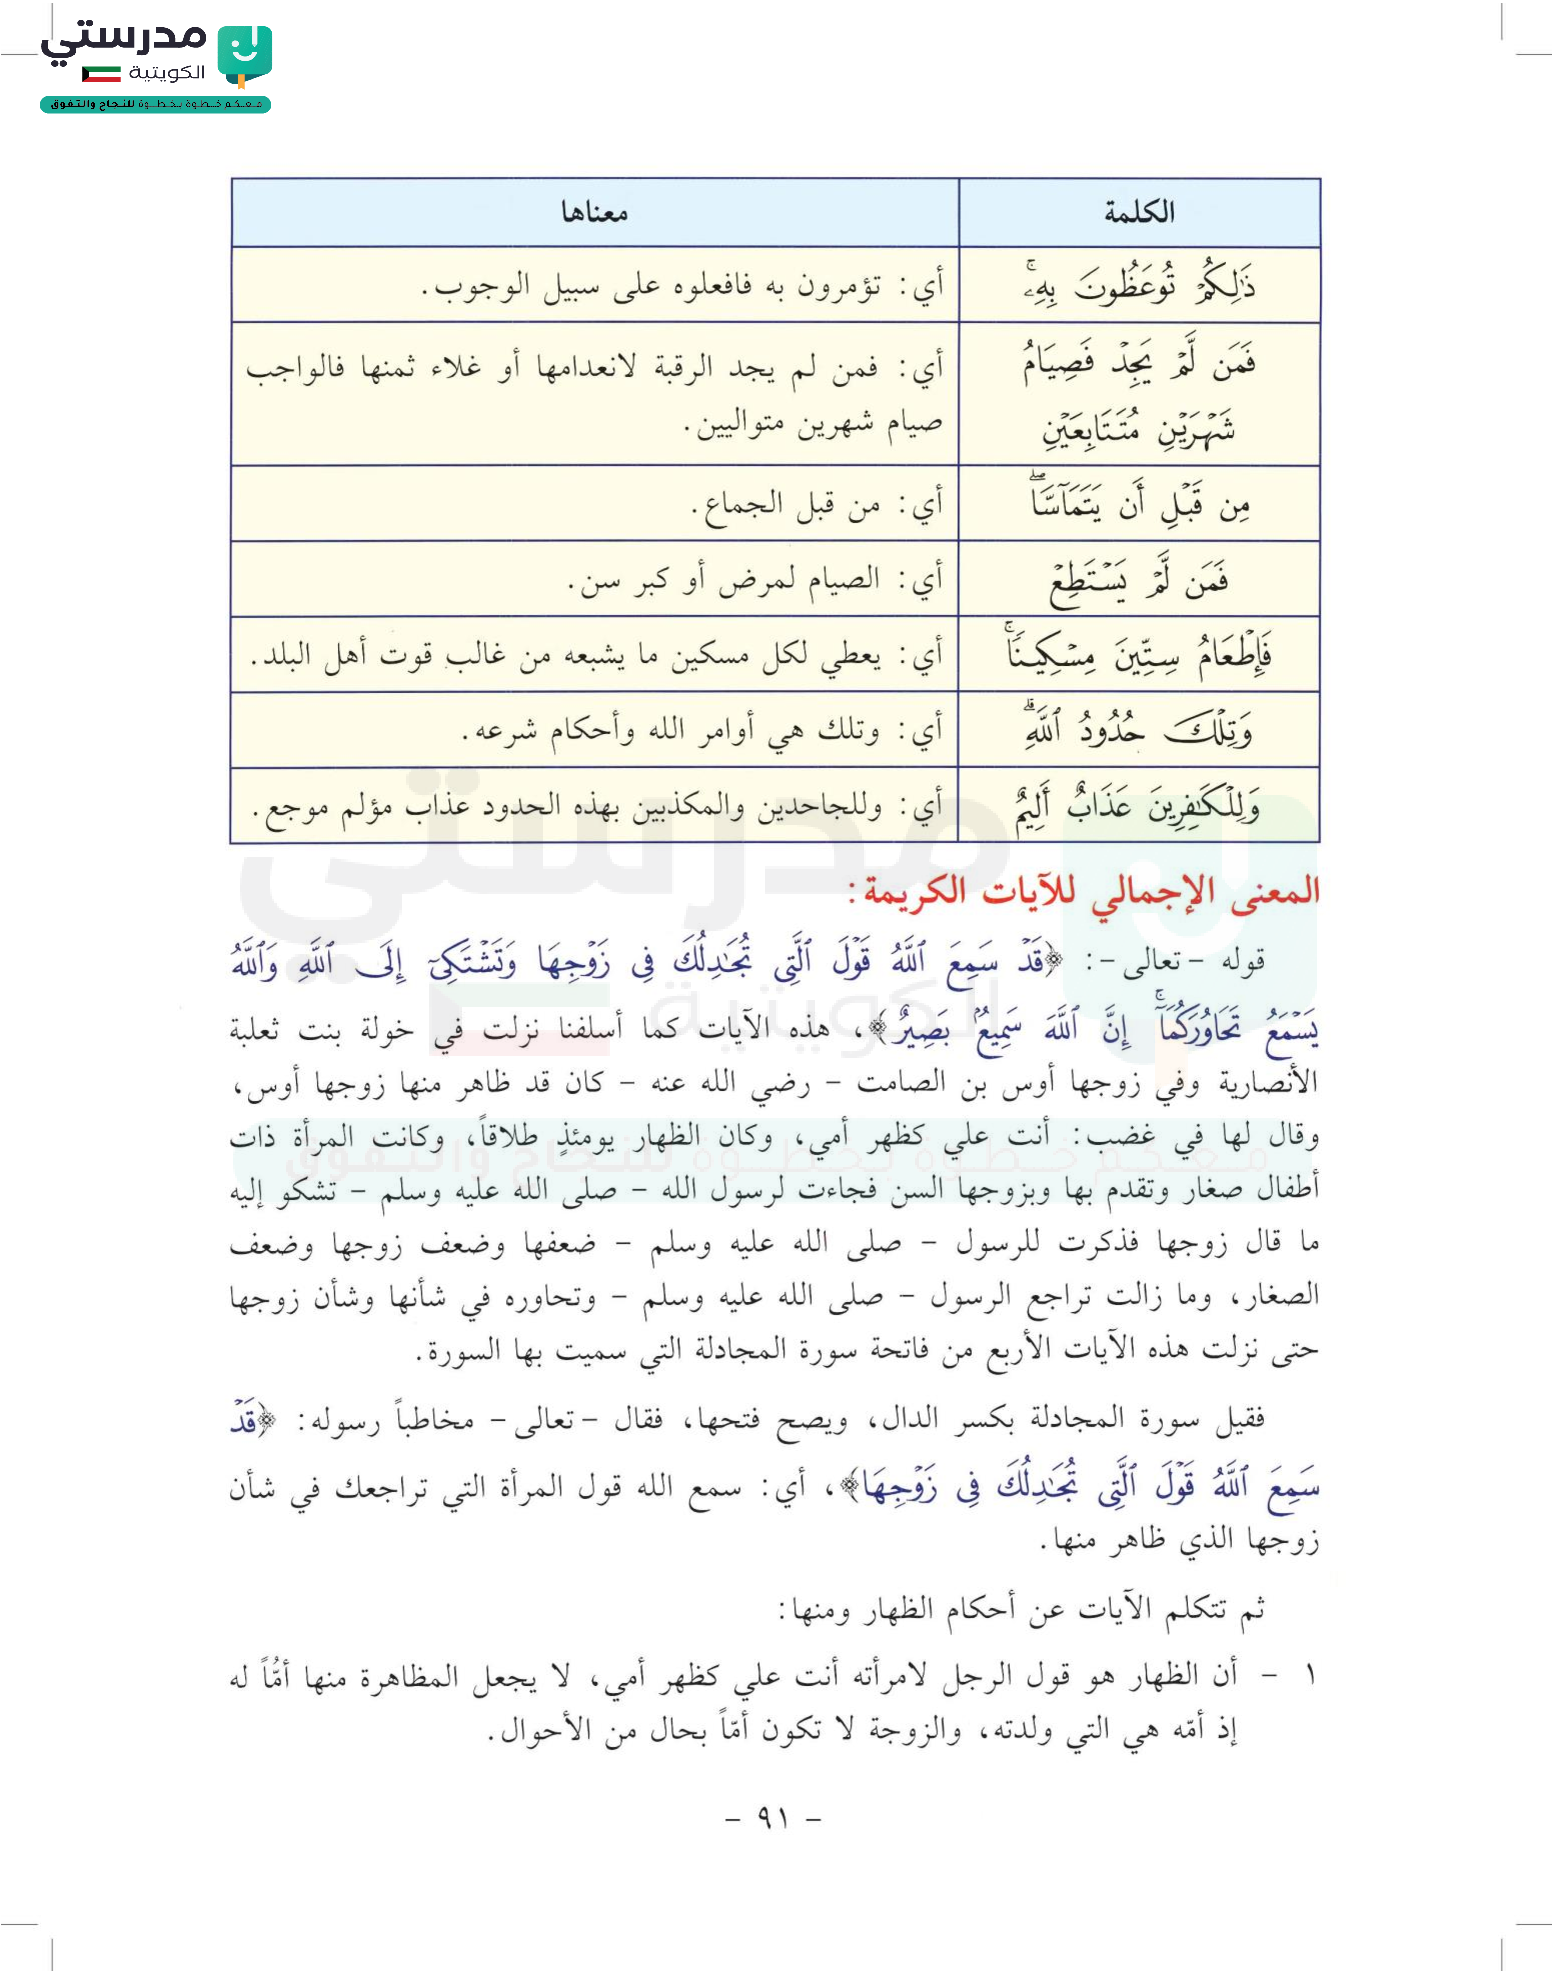 مدرستي
الكويتية
معكم خطوة بخطوة للنجاح والتفوق
الكلمة معناها
ذَٰلِكُمْ تُوعَظُونَ بِهِۦۚ أي: تؤمرون به فافعلوه على سبيل الوجوب.
فَمَن لَّمْ يَجِدْ فَصِيَامُ أي: فمن لم يجد الرقبة لانعدامها أو غلاء ثمنها فالواجب
شَهْرَيْنِ مُتَتَابِعَيْنِ صيام شهرين متواليين.
مِن قَبْلِ أَن يَتَمَآسَّاۖ أي: من قبل الجماع.
فَمَن لَّمْ يَسْتَطِعْ أي: الصيام لمرض أو كبر سن.
فَإِطْعَامُ سِتِّينَ مِسْكِينًاۚ أي: يعطي لكل مسكين ما يشبعه من غالب قوت أهل البلد.
وَتِلْكَ حُدُودُ ٱللَّهِۗ أي: وتلك هي أوامر الله وأحكام شرعه.
وَلِلْكَٰفِرِينَ عَذَابٌ أَلِيمٌ أي: وللجاحدين والمكذبين بهذه الحدود عذاب مؤلم موجع.
المعنى الإجمالي للآيات الكريمة:
قوله -تعالى-: ﴿قَدْ سَمِعَ ٱللَّهُ قَوْلَ ٱلَّتِى تُجَٰدِلُكَ فِى زَوْجِهَا وَتَشْتَكِىٓ إِلَى ٱللَّهِ وَٱللَّهُ
يَسْمَعُ تَحَاوُرَكُمَآۚ إِنَّ ٱللَّهَ سَمِيعٌۢ بَصِيرٌ﴾، هذه الآيات كما أسلفنا نزلت في خولة بنت ثعلبة
الأنصارية وفي زوجها أوس بن الصامت - رضي الله عنه - كان قد ظاهر منها زوجها أوس،
وقال لها في غضب: أنت علي كظهر أمي، وكان الظهار يومئذٍ طلاقاً، وكانت المرأة ذات
أطفال صغار وتقدم بها وبزوجها السن فجاءت لرسول الله - صلى الله عليه وسلم - تشكو إليه
ما قال زوجها فذكرت للرسول - صلى الله عليه وسلم - ضعفها وضعف زوجها وضعف
الصغار، وما زالت تراجع الرسول - صلى الله عليه وسلم - وتحاوره في شأنها وشأن زوجها
حتى نزلت هذه الآيات الأربع من فاتحة سورة المجادلة التي سميت بها السورة.
فقيل سورة المجادلة بكسر الدال، ويصح فتحها، فقال -تعالى- مخاطباً رسوله: ﴿قَدْ
سَمِعَ ٱللَّهُ قَوْلَ ٱلَّتِى تُجَٰدِلُكَ فِى زَوْجِهَا﴾، أي: سمع الله قول المرأة التي تراجعك في شأن
زوجها الذي ظاهر منها.
ثم تتكلم الآيات عن أحكام الظهار ومنها:
١ - أن الظهار هو قول الرجل لامرأته أنت علي كظهر أمي، لا يجعل المظاهرة منها أمُّاً له
إذ أمّه هي التي ولدته، والزوجة لا تكون أمّاً بحال من الأحوال.
- ٩١ -